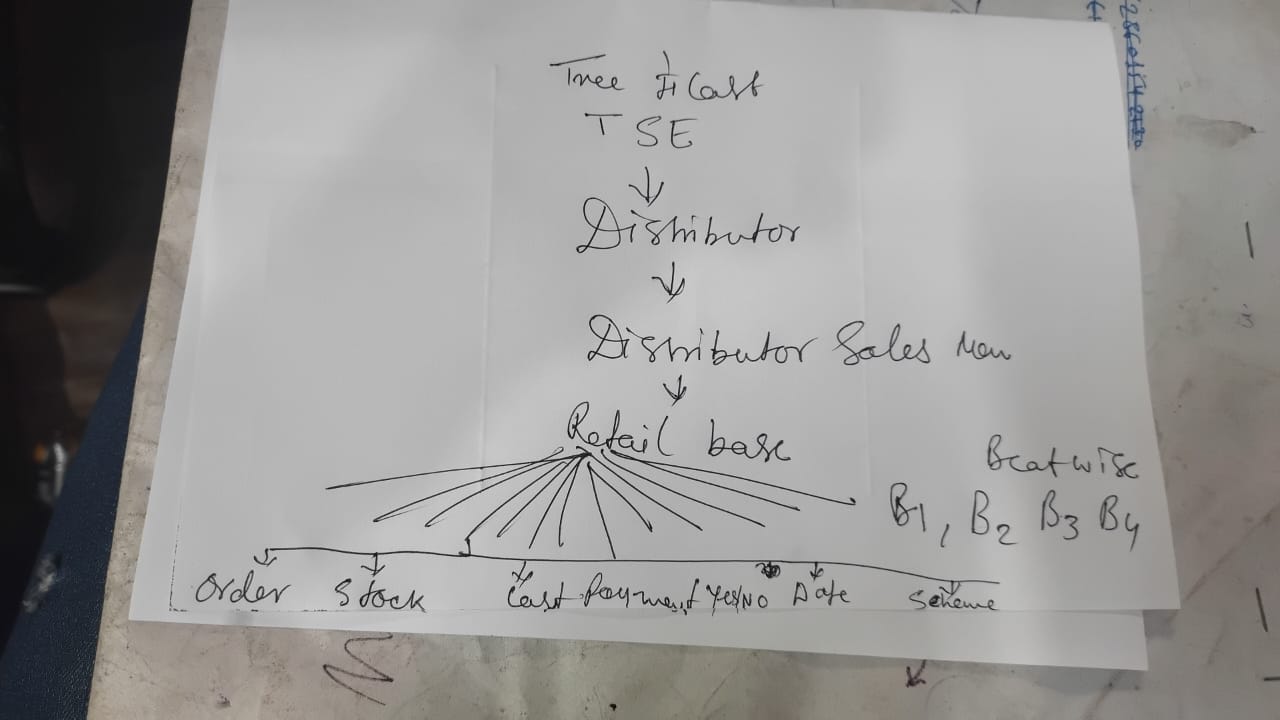 Tree
TSE
Distributor
Distributor Sales Man
Retail base
Beatwise
B1, B2 B3 B4
Order Stock Last Payment Yes/No Date Scheme